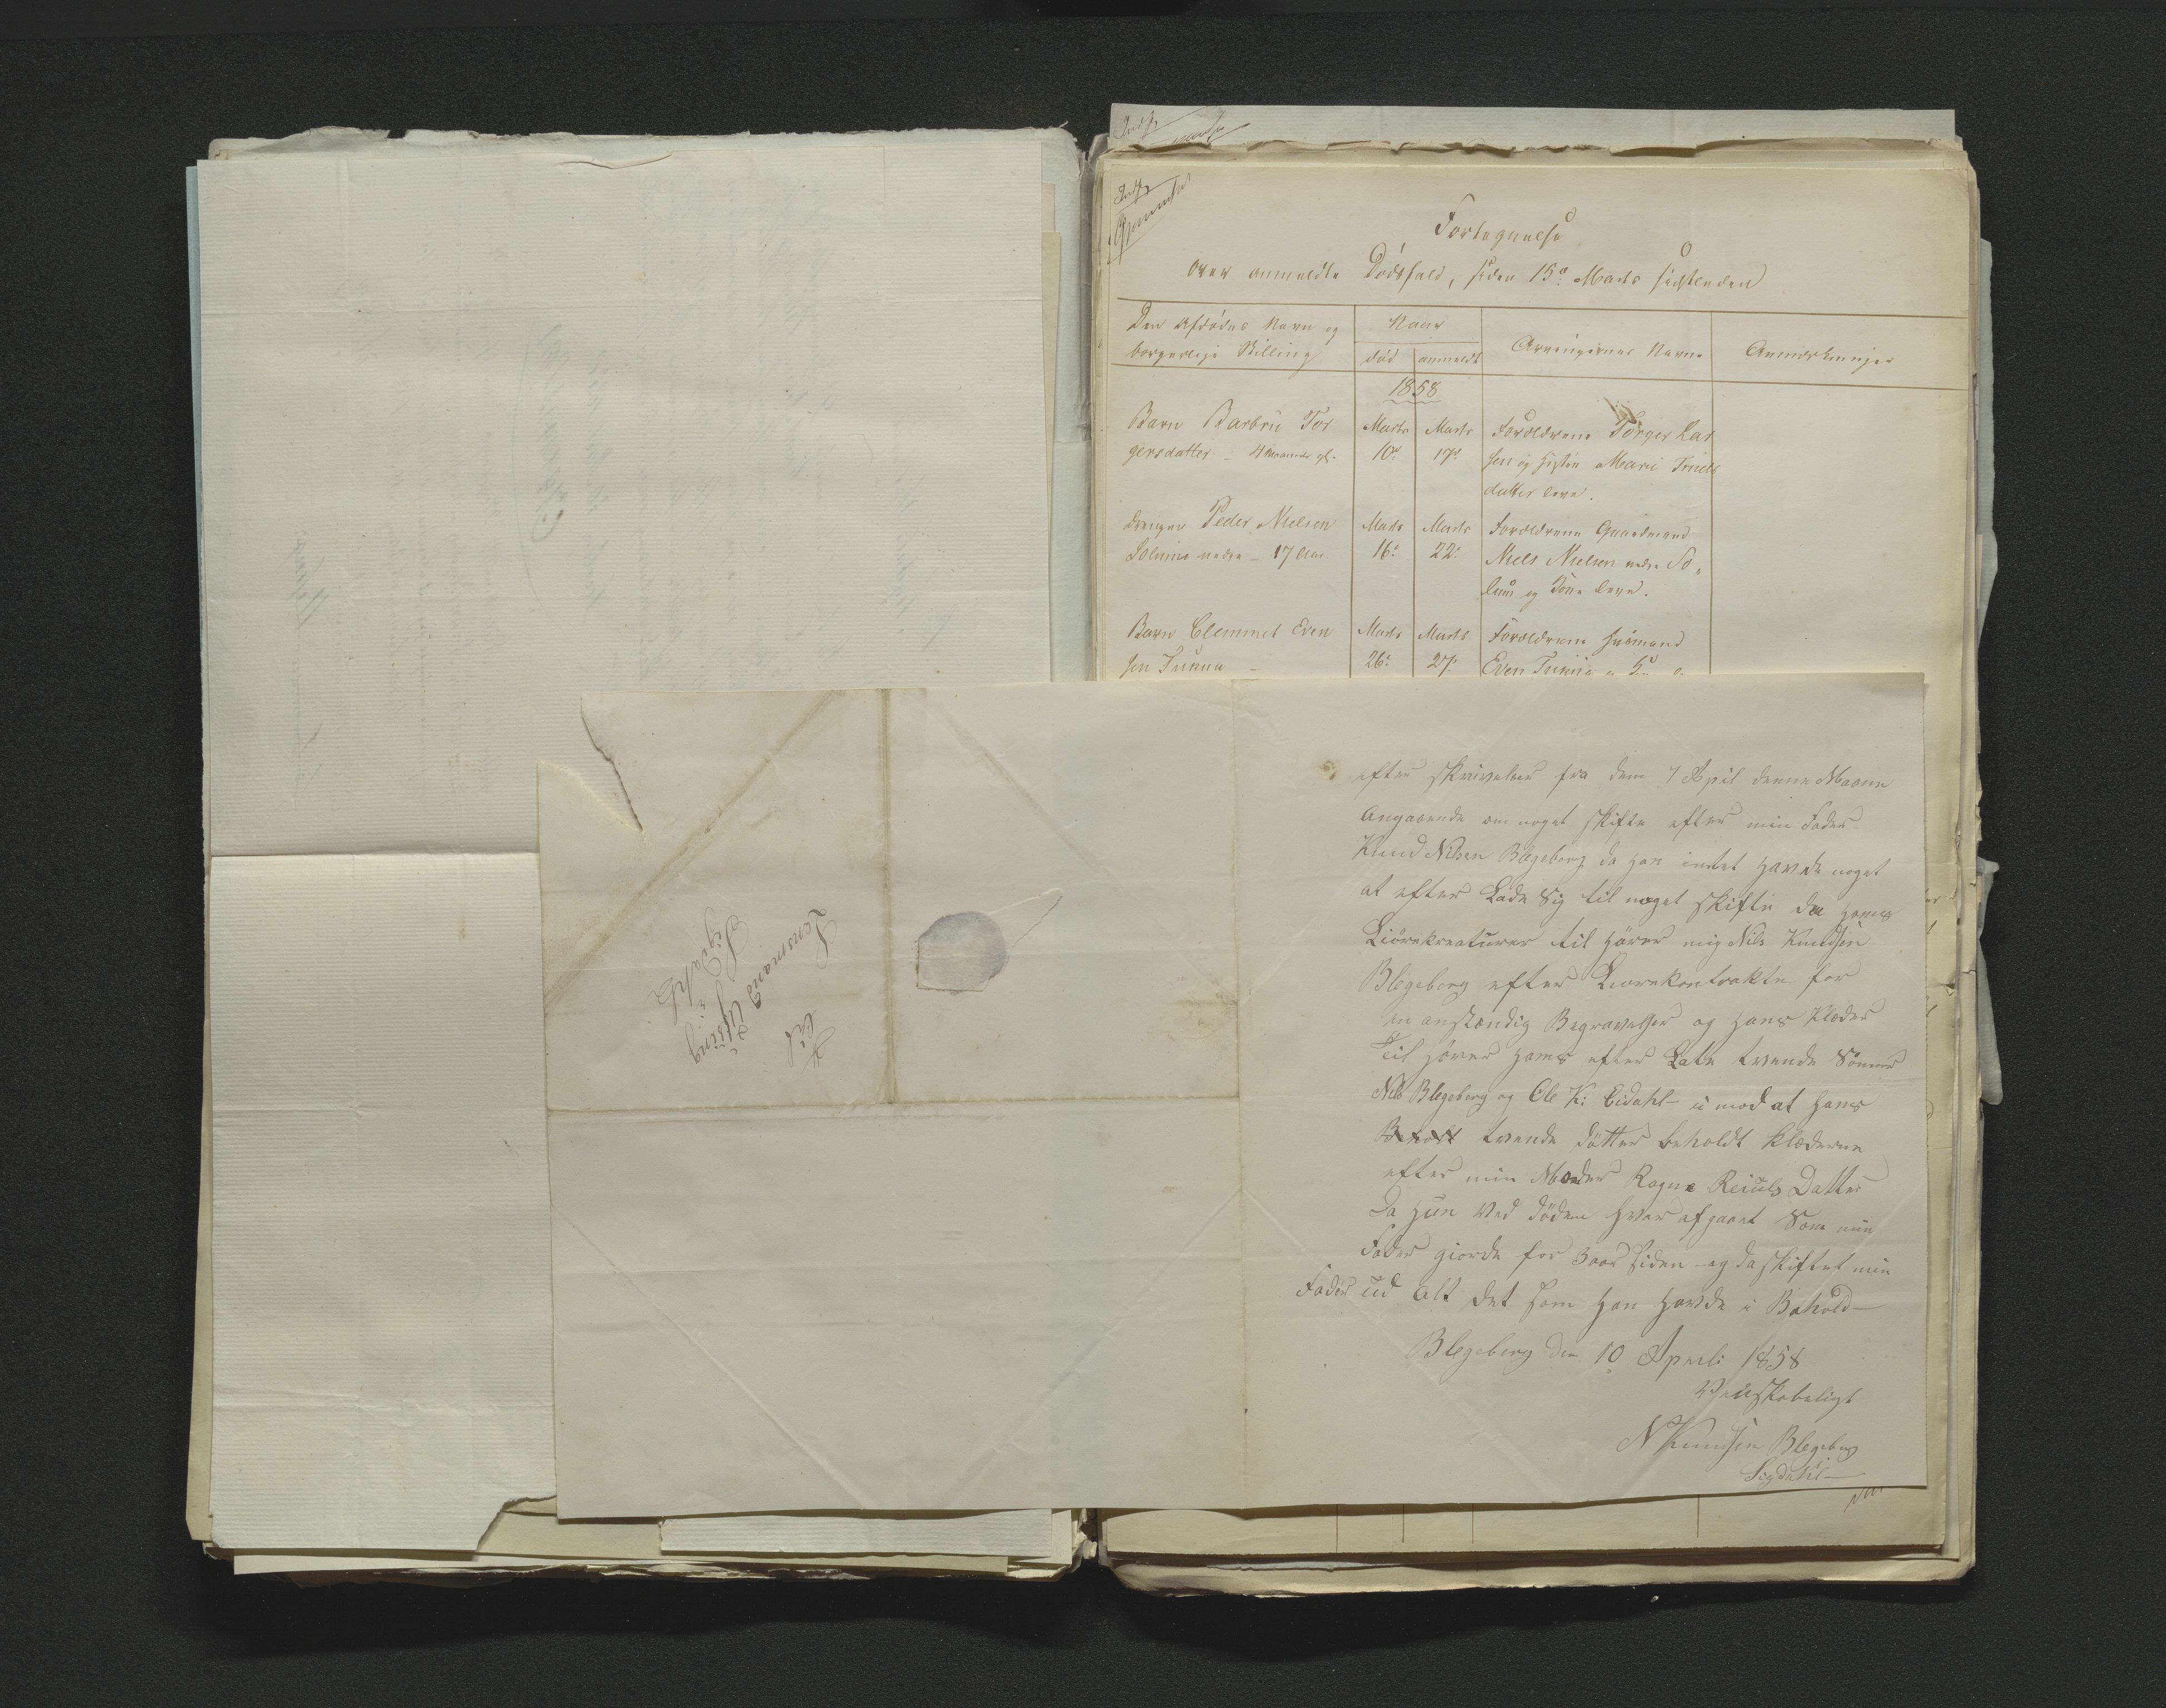 Fortegnelse
over anmeldte Dödsfald, siden 15de Marts sidstleden
Den Afdödes Navn og
borgerlige Stilling
Naar
död
anmeldt
Arvingernes Navne
Anmærkninger
1858
Barn Barbru Tor
gersdatter - 4 Maaneder gl.
Marts 10de
Marts 17de
Forældrene Torger Lar
sen og Hustru Marie Truels
datter leve.
Drengen Peder Nielsen
Solumo nedre - 17 Aar
Marts 16de
Marts 22de
Forældrene Gaardmand
Niels Nielsen nedre So
lum og Kone leve.
Barn Clemmet Even
sen Tunna -
Marts 26de
Marts 27de
Forældrene Husmand
Even
efter skrivelser fra dem 7 April denne Maane
Angaaende om noget skifte efter min Fader
Knud Nilsen Blegeberg da han intet havde noget
at efter Lade Sig til noget skifte da hans
Liörekreaturer til hörer mig Nils Knudsen
Blegeberg efter Livrekontrakte for
en anstændig Begravelser og hans Klæder
Til hörer hans efter Late tvende Sönner
Nils Blegeberg og Ole K: Eidahl i mod at hans
tvende döttre beholdt klæderne
efter min Moder Ragne Reiuls Datter
da hun Ved döden hver afgaaet Som min
Fader giorde for 3 aar siden og da skiftet min
Fader ud alt det som han havde i Behold
Blegeberg den 10 Aprili 1858
Venskabeligt
N Knudsen Blegeberg
Sigdahl
Til
Lensmand Ussing
i
Sigdahl